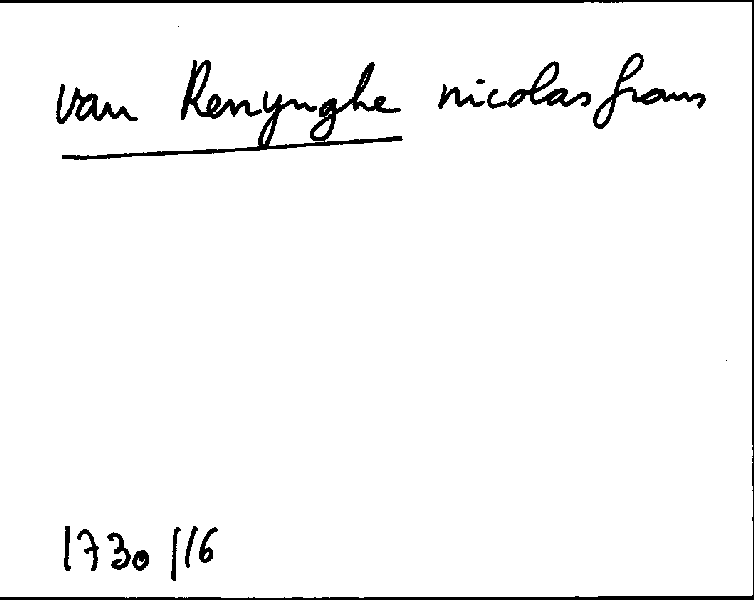 van Renynghe nicolas frans
1730/16